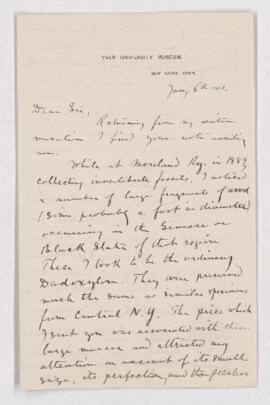 YALE UNIVERSITY MUSEUM.
NEW HAVEN, CONN.
Jany 6th
Dear Sir,
Returning from my winter
vacation I find your note awaiting
me.
While at Moreland Ky. in 1889,
collecting invertebrate fossils, I noticed
a number of large fragments of wood
(some probably a foot in diameter)
occurring in the Genesee or
Black Slate of that region
These I took to be the ordinary
Dadoxylon. They were preserved
much the same as similar specimens
from Central N.Y. The piece which
I sent you was associated with these
large masses and attracted my
attention on account of its small
size, its perfection, and the peculiar